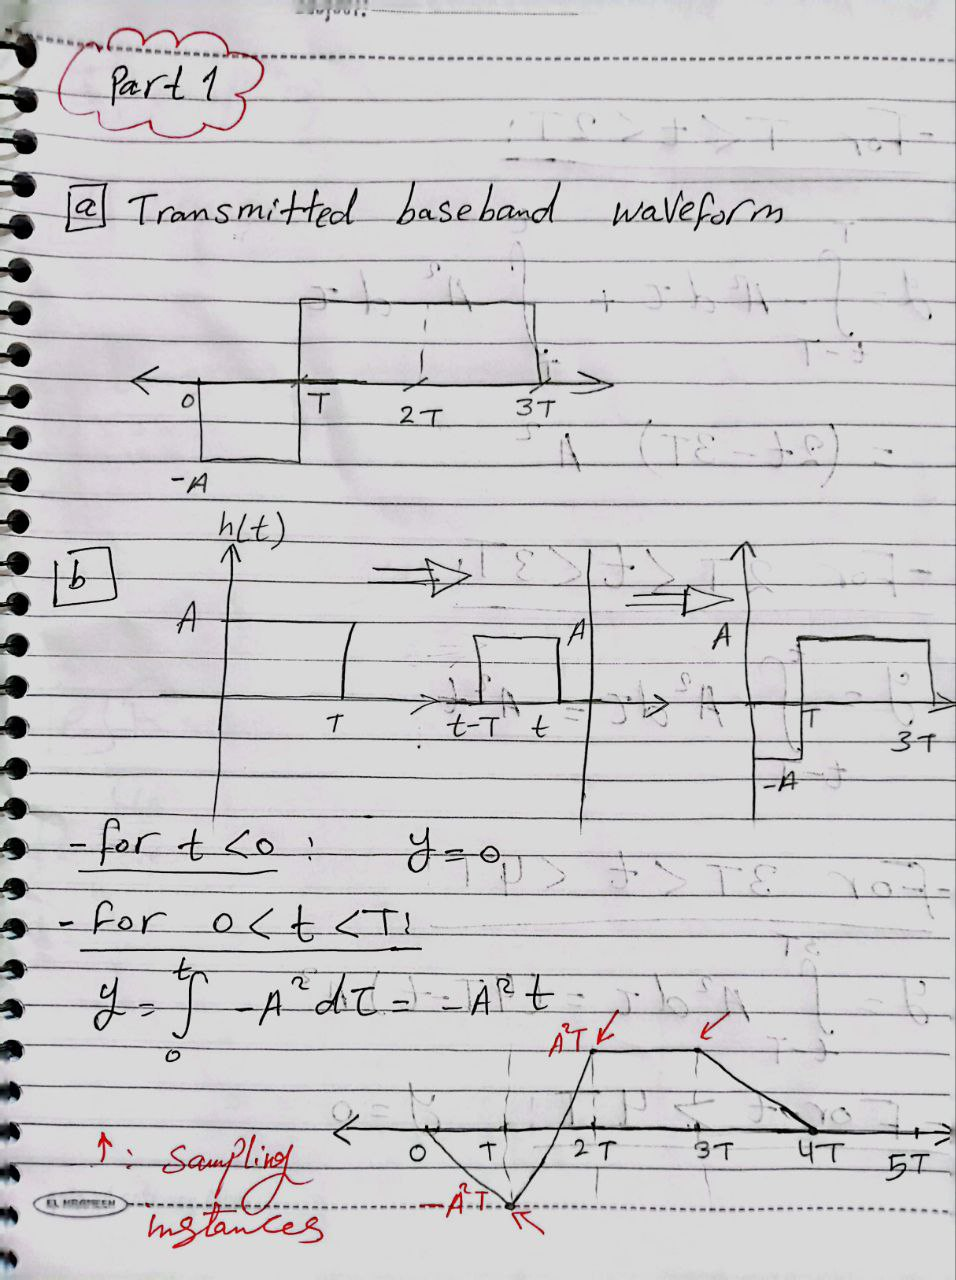 Subject:
Part 1
a Transmitted baseband waveform
0 T 2T 3T
-A
h(t)
b
A A A
T t-T t T 3T
-A
- for t < 0 : y = 0
- for 0 < t < T:
y = ∫₀ᵗ -A² dτ = -A² t
A²T
0 T 2T 3T 4T 5T
↑ : Sampling
-A²T
instances